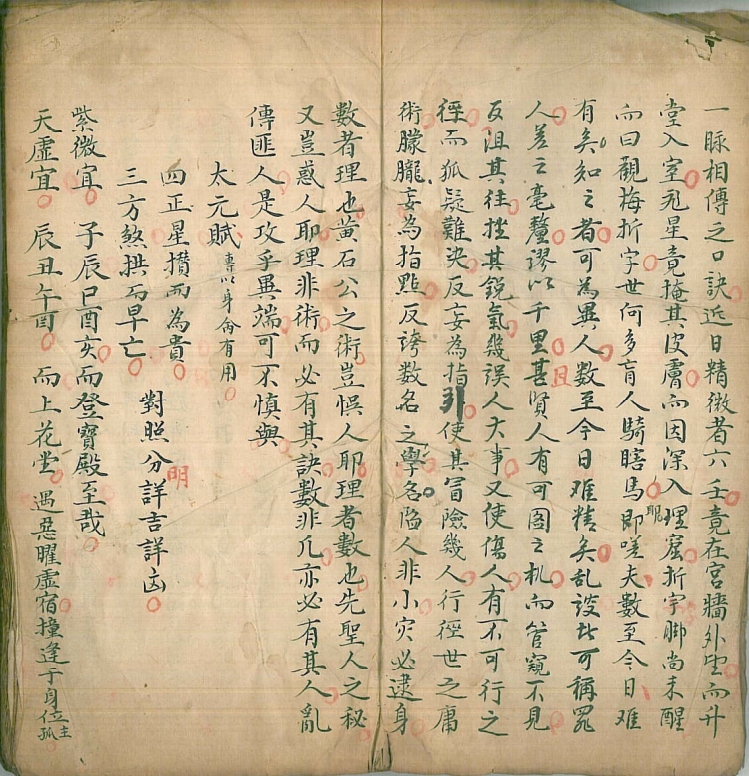 一脉相傳之口訣近日精微者六壬竟在宮牆外望而升
堂入室死星竟掩其皮膚而因深入理窟折字脚尚未醒
而曰觀梅折字世何多盲人騎瞎馬即嗟夫數至今日难
眼
有矣知之者可為異人数至今日难精矣乱談皆可稱罷
人差之毫釐謬以千里甚且賢人有可圖之机而管窺不見
反阻其往挫其銳氣幾誤人大事又使傷人有不可行之
徑而狐疑難決反妄為指引使其冒險幾人行徑世之庸
術朦朧妄為指點反誇数名之學名陷人非小灾必逮身
數者理也黄石公之術豈悞人耶理者數也先聖人之秘
又豈惑人耶理非術而必有其訣數非凡亦必有其人亂
傳匪人是攻乎異端可不慎與
太元賦 專以身命有用
四正星攢而為貴
三方煞拱而早亡 對照分明詳吉詳凶
紫微宜 子辰巳酉亥而登寶殿至哉
天虛宜 辰丑午酉 而上花堂 遇惡曜虛宿撞逢于身位主孤